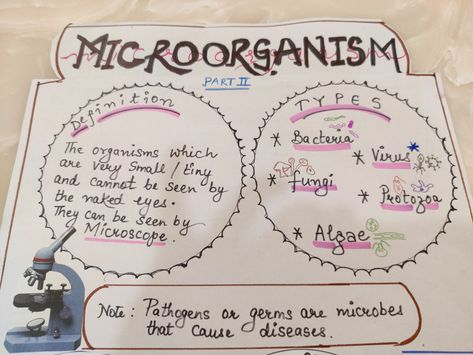 MICROORGANISM
PART II
Definition
The organisms which
are very small / tiny
and cannot be seen by
the naked eyes.
They can be seen by
Microscope.
TYPES
* Bacteria
* Virus
* fungi
* Protozoa
* Algae
Note : Pathogens or germs are microbes
that cause diseases.